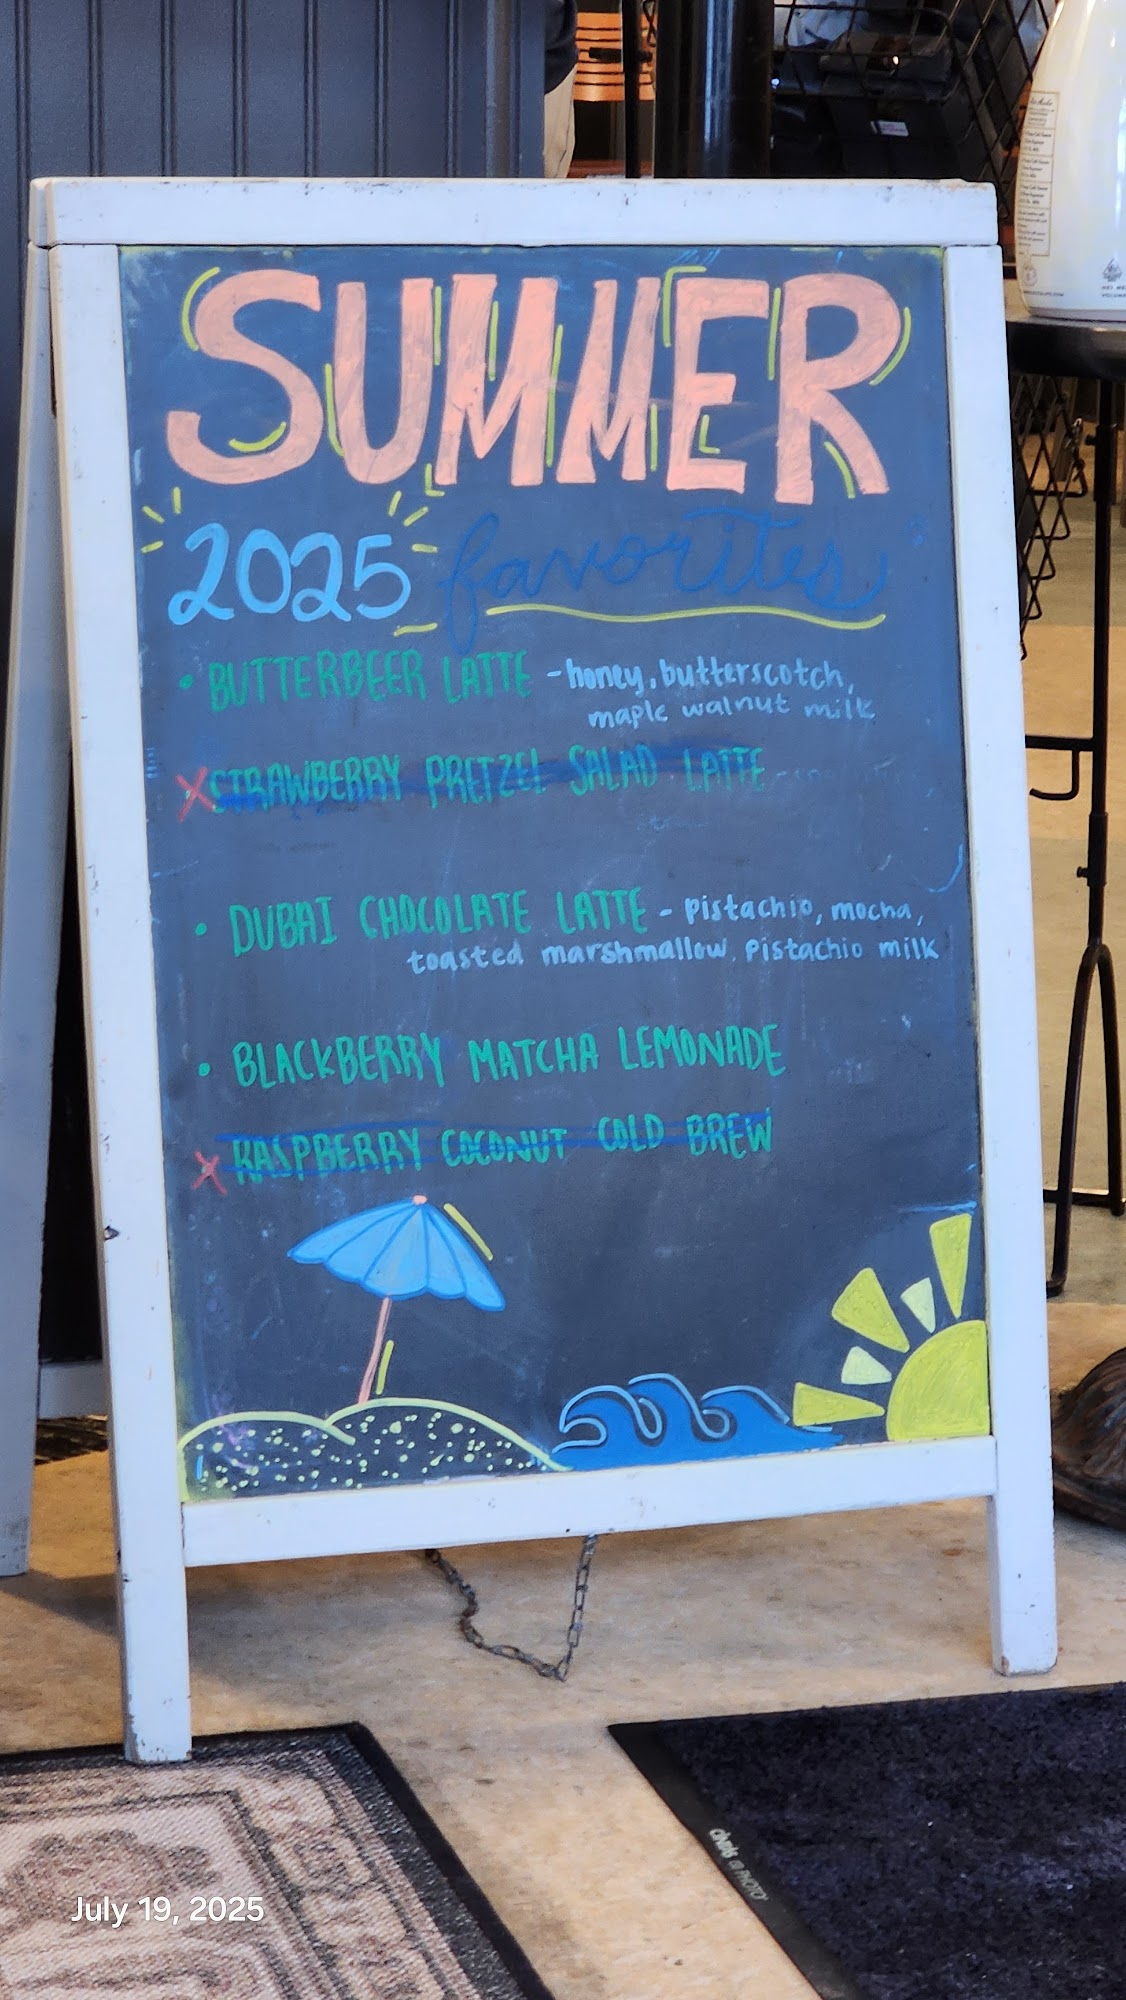 SUMMER
2025 favorites
• BUTTERBEER LATTE - honey, butterscotch,
maple walnut milk
X STRAWBERRY PRETZEL SALAD LATTE -
• DUBAI CHOCOLATE LATTE - pistachio, mocha,
toasted marshmallow, pistachio milk
• BLACKBERRY MATCHA LEMONADE
X RASPBERRY COCONUT COLD BREW
July 19, 2025